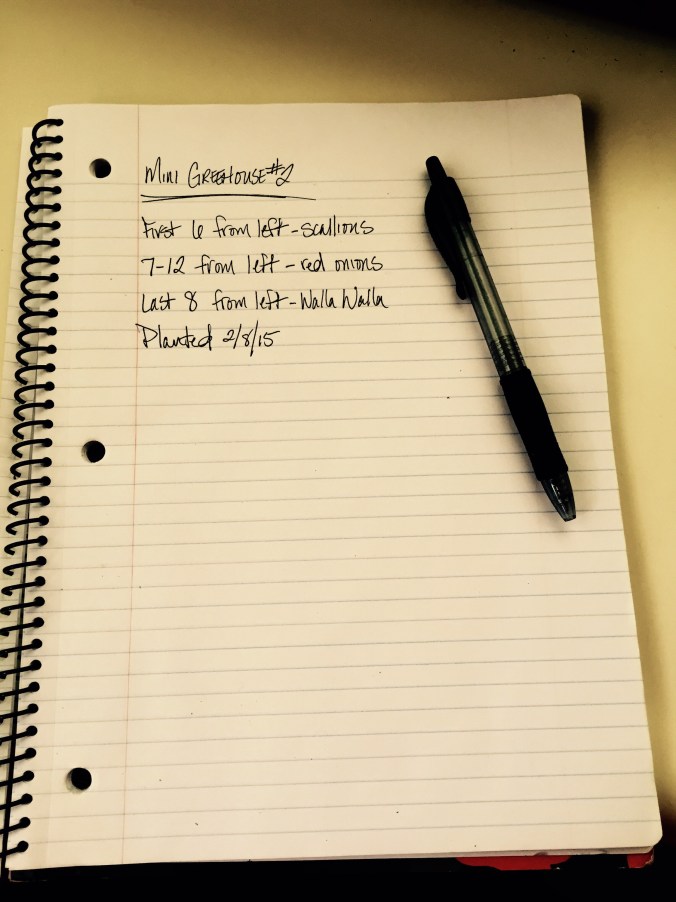 Mini Greehouse #2
First 6 from left - scallions
7-12 from left - red onions
Last 8 from left - Walla Walla
Planted 2/8/15